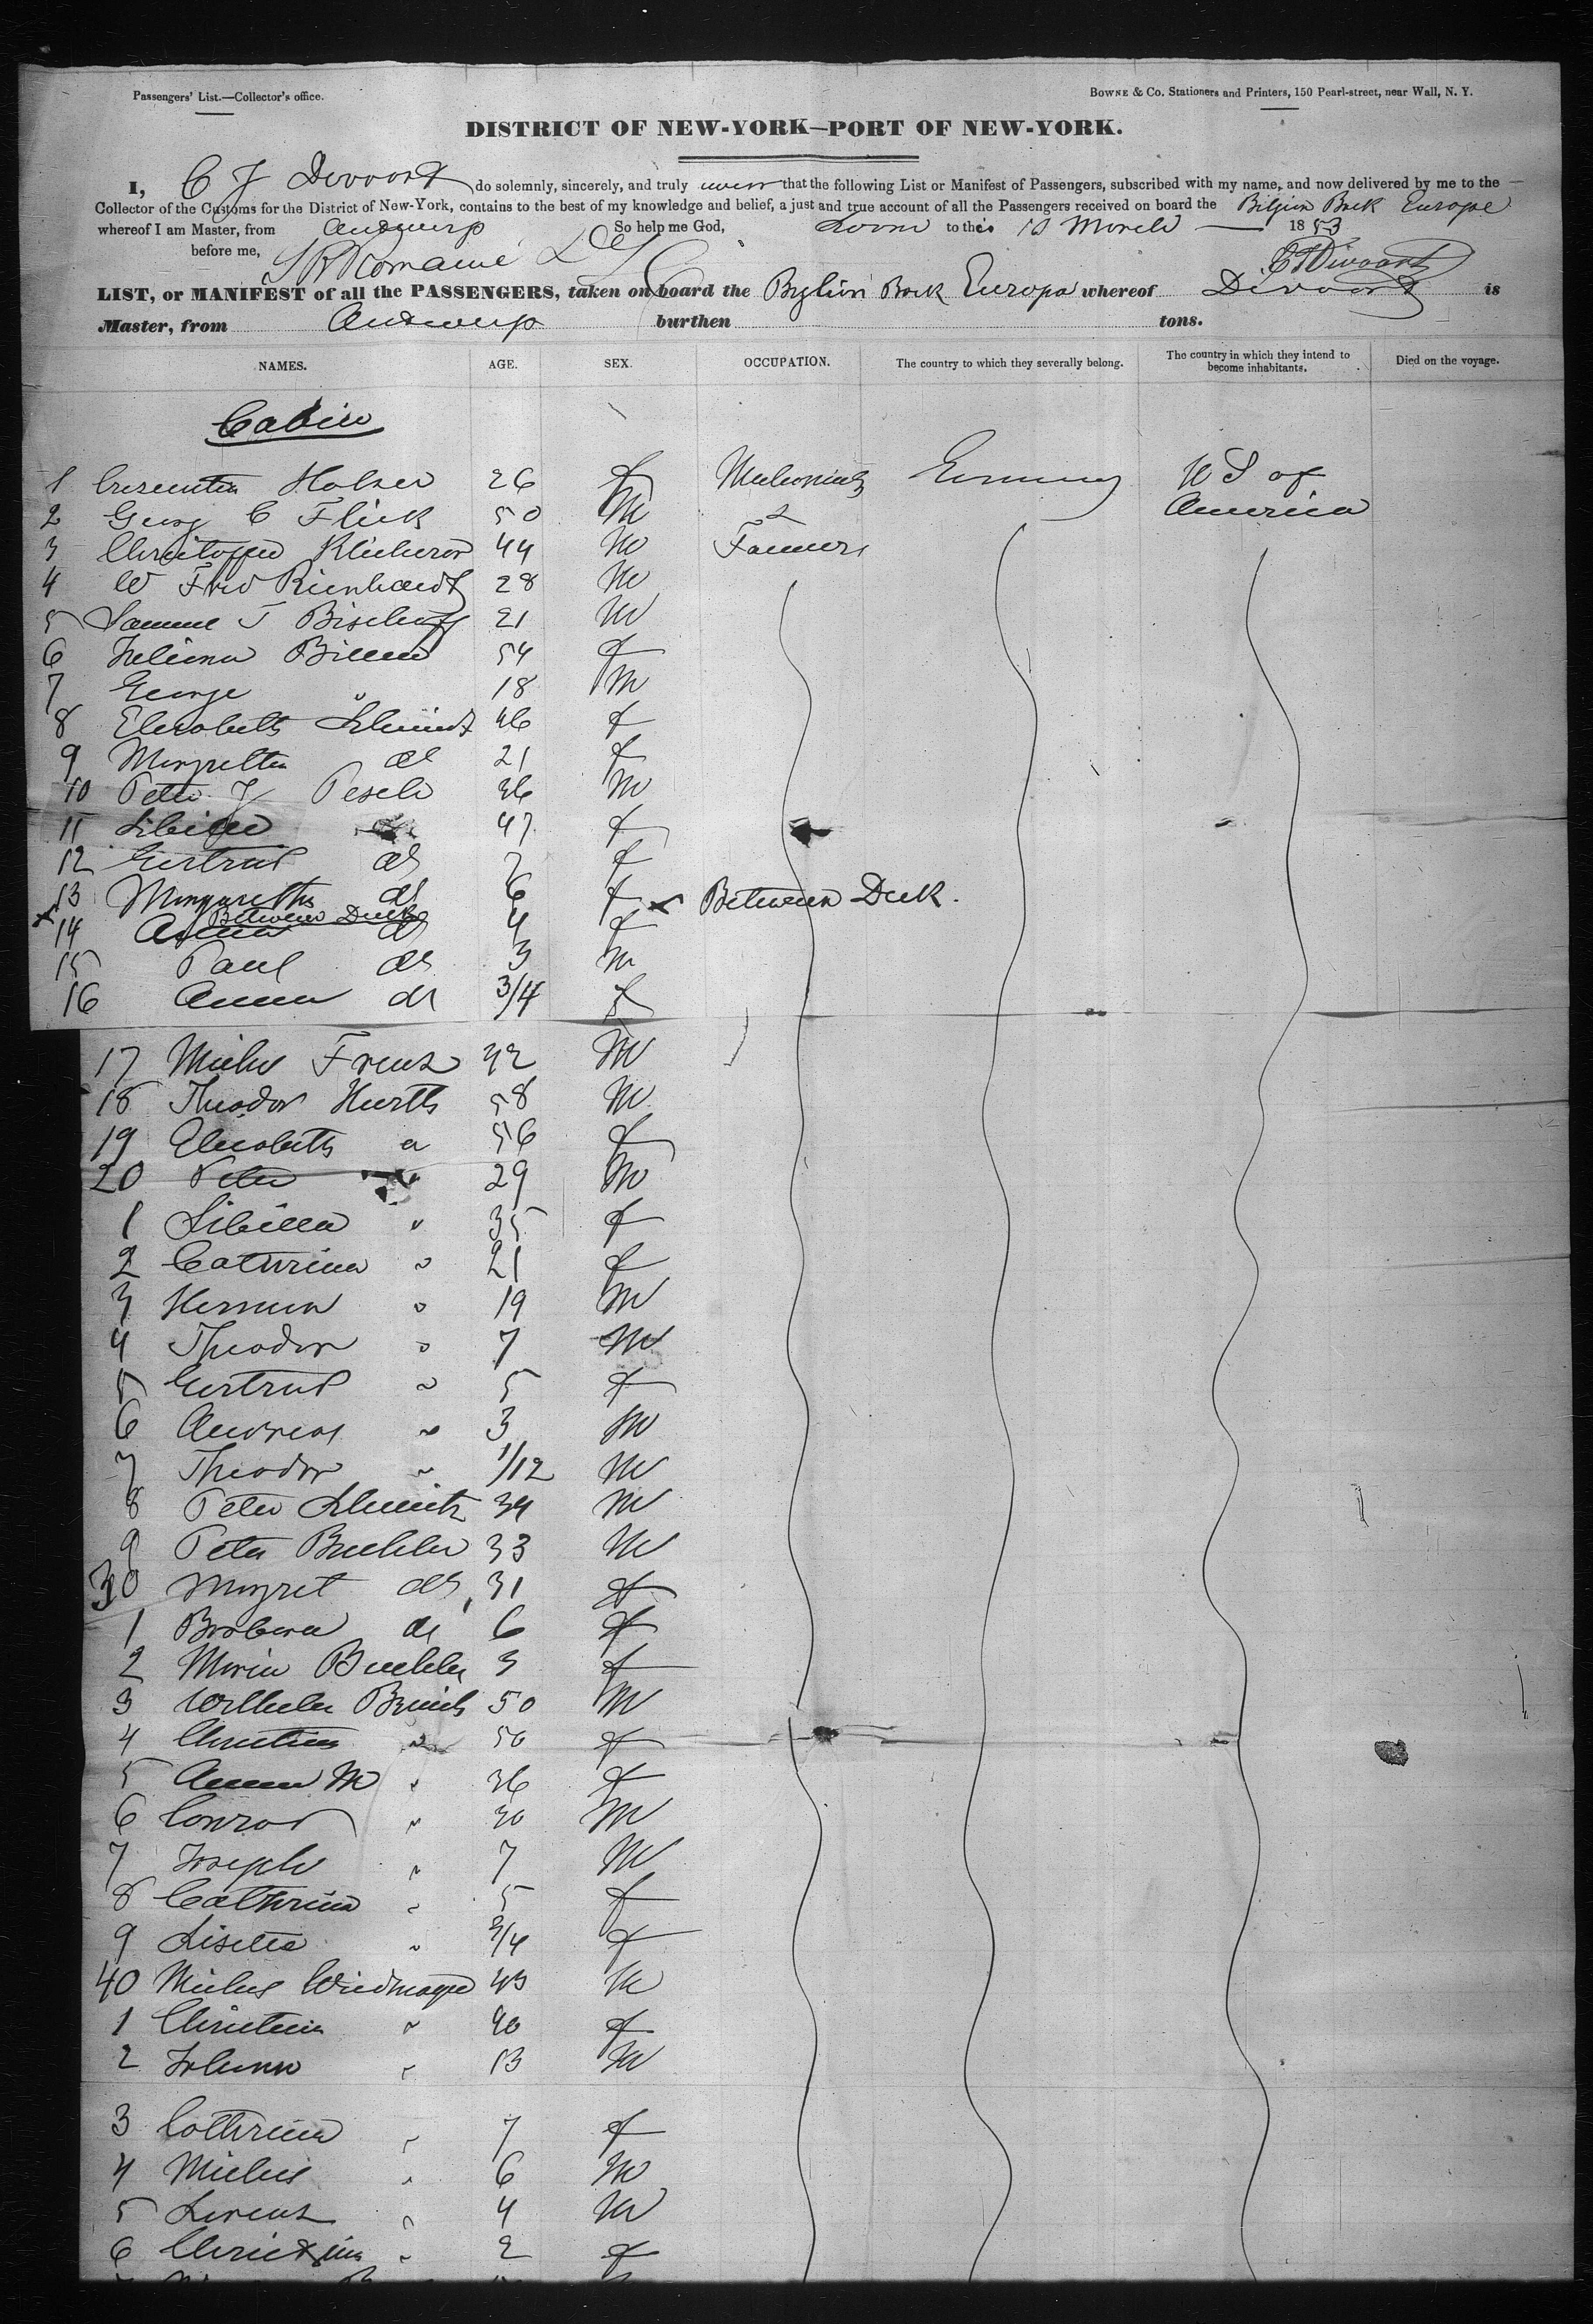 Passengers' List.—Collector's office.
BOWNE & Co. Stationers and Printers, 150 Pearl-street, near Wall, N. Y.
DISTRICT OF NEW-YORK—PORT OF NEW-YORK.
I, C J Devoort do solemnly, sincerely, and truly swear that the following List or Manifest of Passengers, subscribed with my name, and now delivered by me to the
Collector of the Customs for the District of New-York, contains to the best of my knowledge and belief, a just and true account of all the Passengers received on board the Belgian Bark Europa
whereof I am Master, from Antwerp So help me God, Sworn to this 10 March 1853
before me,
LIST, or MANIFEST of all the PASSENGERS, taken on board the Belgian Bark Europa whereof Devoort is
Master, from Antwerp burthen tons.
NAMES. AGE. SEX. OCCUPATION. The country to which they severally belong. The country in which they intend to become inhabitants. Died on the voyage.
Cabin
1 Holzer 26 f Germany U S of
2 Georg C Flick 50 M America
3 44 M Farmers
4 W Fred Rienhardt 28 M
5 J Bischoff 21 M
6 54 f
7 George " 18 M
8 Elisabeth Schmidt 46 f
9 Margretta do 21 f
10 Peter J Pesch 36 M
11 Sibilla do 47 f
12 Gertrud do 7 f
13 Margaretha do 6 f x Between Deck.
x Between Deck
14 Anna do 4 f
15 Paul do 3 M
16 Anna do 3/4 f
17 Frenz 42 M
18 Theodor Hurth 58 M
19 Elisabeth " 56 f
20 Peter " 29 M
1 Sibilla " 35 f
2 Cathrina " 21 f
3 Herman " 19 M
4 Theodor " 7 M
5 Gertrud " 5 f
6 Andreas " 3 M
7 Theodor " 1/12 M
8 Peter Schmitz 34 M
9 Peter Buchler 33 M
30 Margret do 31 f
1 Barbara do 6 f
2 Maria Buchler 3 f
3 Wilhelm 50 M
4 Christina " 50 f
5 Anna M " 36 f
6 Conrad " 30 M
7 Joseph " 7 M
8 Cathrina " 5 f
9 Lisetta " 3/4 f
40 Widmayer 43 M
1 Christina " 40 f
2 Johann " 13 M
3 Cathrina " 7 f
4 " 6 M
5 Lorenz " 4 M
6 Christina " 2 f